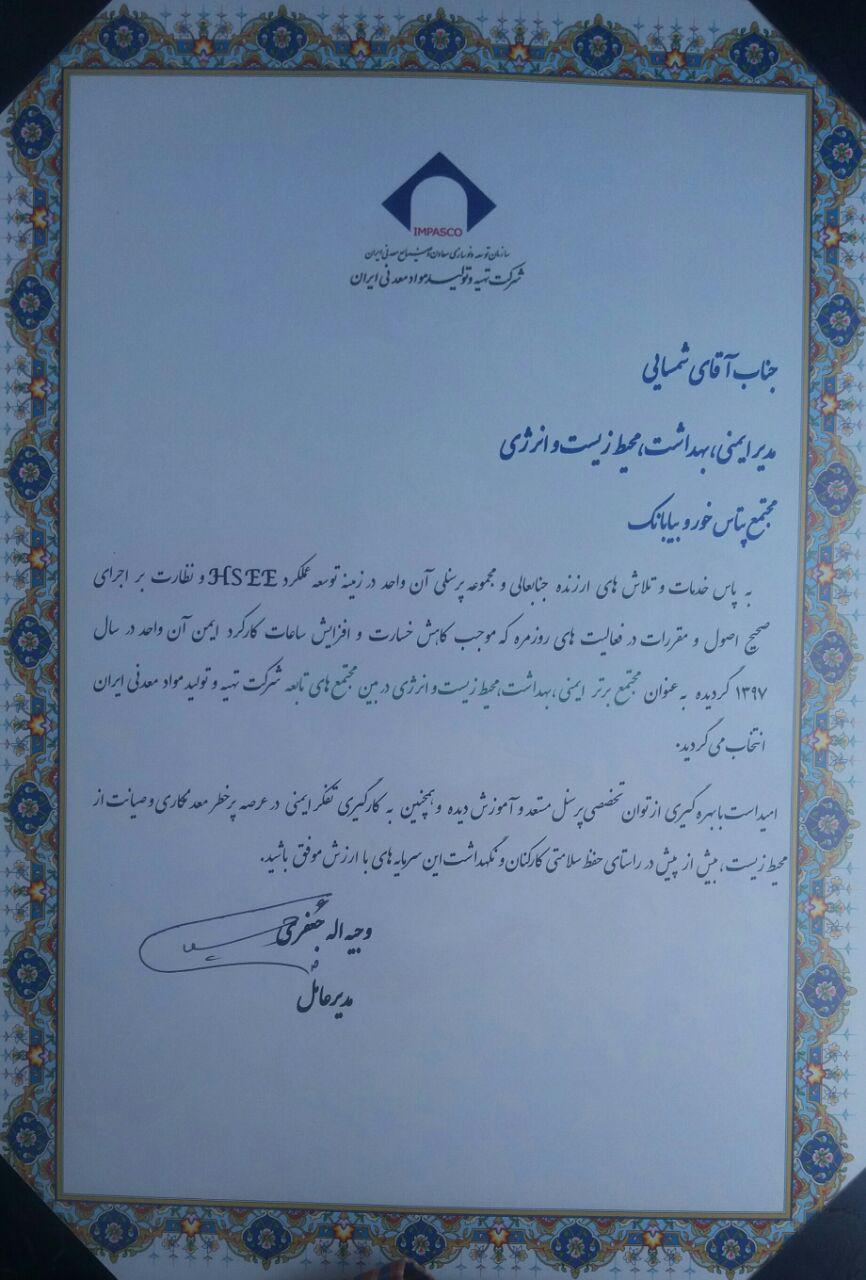 IMPASCO
سازمان توسعه و نوسازی معادن و صنایع معدنی ایران
شرکت تهیه و تولید مواد معدنی ایران
جناب آقای شمسایی
مدیر ایمنی، بهداشت، محیط زیست و انرژی
مجتمع پتاس خور و بیابانک
به پاس خدمات و تلاش های ارزنده جنابعالی و مجموعه پرسنلی آن واحد در زمینه توسعه عملکرد HSEE و نظارت بر اجرای
صحیح اصول و مقررات در فعالیت های روزمره که موجب کاهش خسارت و افزایش ساعات کارکرد ایمن آن واحد در سال
۱۳۹۷ گردیده به عنوان مجتمع برتر ایمنی، بهداشت، محیط زیست و انرژی در بین مجتمع های تابعه شرکت تهیه و تولید مواد معدنی ایران
انتخاب می گردید.
امید است با بهره گیری از توان تخصصی پرسنل مستعد و آموزش دیده و همچنین به کارگیری تفکر ایمنی در عرصه پرخطر معدنکاری و صیانت از
محیط زیست، بیش از پیش در راستای حفظ سلامتی کارکنان و نگهداشت این سرمایه های با ارزش موفق باشید.
وجیه اله جعفری
مدیرعامل